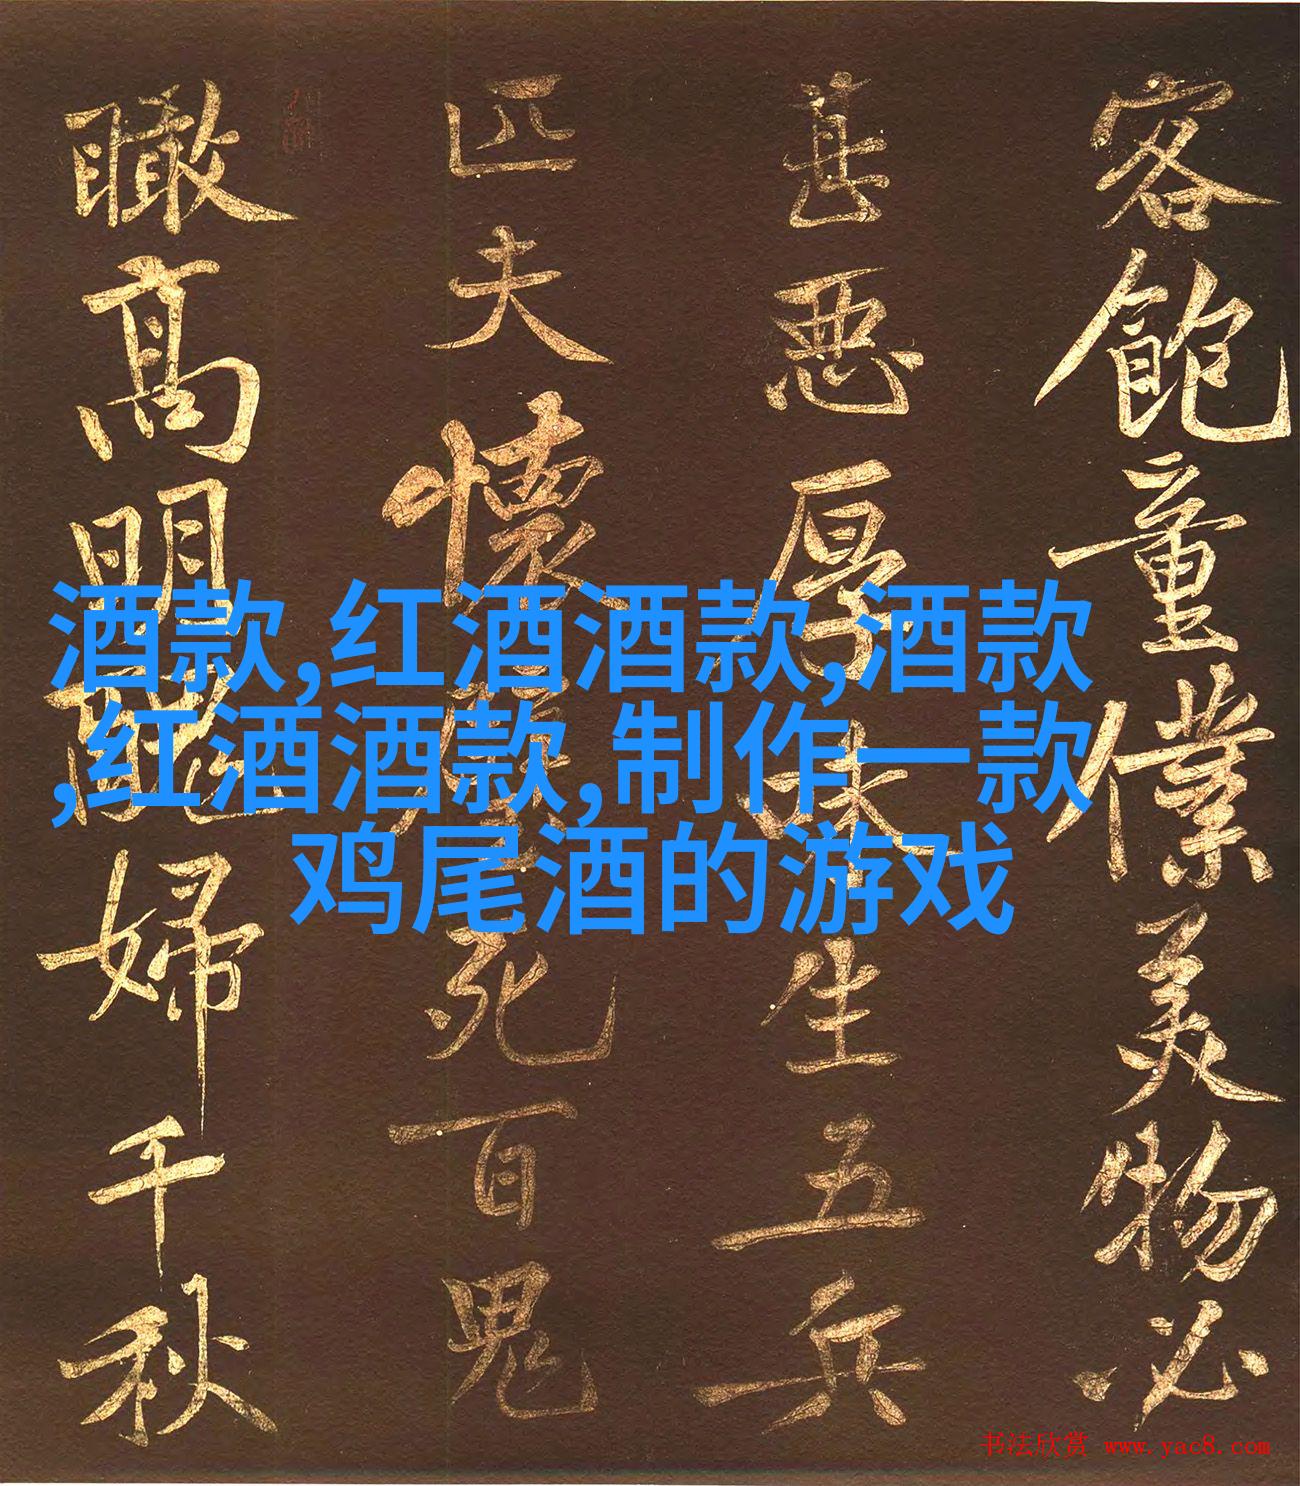 客飽童僕美物必
甚惡厚味生五兵
匹夫懷璧死百鬼
瞰高明醜婦千秋
酒款,红酒酒款,酒款
,红酒酒款,制作一款
鸡尾酒的游戏
书法欣赏 www.yac8.com